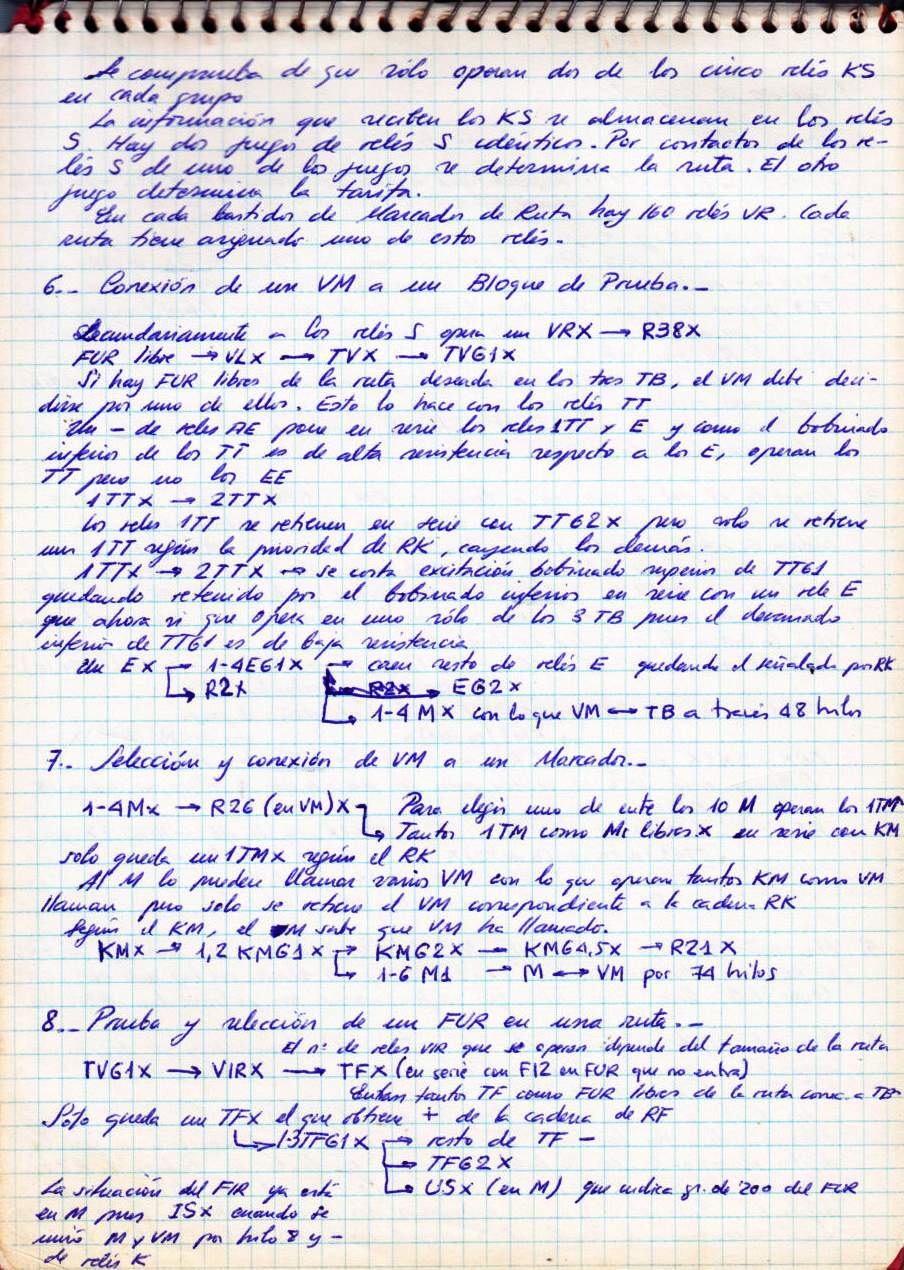 Se comprueba de que sólo operan dos de los cinco relés KS
en cada grupo
La información que reciben los KS se almacenan en los relés
S. Hay dos juegos de relés S idénticos. Por contactos de los re-
lés S de uno de los juegos se determina la ruta. El otro
juego determina la tarifa.
En cada bastidor de Marcador de Ruta hay 160 relés VR. Cada
ruta tiene asignado uno de estos relés.-
6.- Conexión de un VM a un Bloque de Prueba.-
Secundariamente a los relés S opera un VRX → R38X
FUR libre → VLX → TVX → TVG1X
Si hay FUR libres de la ruta deseada en los tres TB, el VM debe deci-
dirse por uno de ellos. Esto lo hace con los relés TT
Un - de relés AE pone en serie los relés 1TT y E y como el bobinado
inferior de los TT es de alta resistencia respecto a los E, operan los
TT pero no los EE
1TTX → 2TTX
Los relés 1TT se retienen en serie con TTG2X pero solo se retiene
un 1TT según la prioridad de RK, cayendo los demás.
1TTX → 2TTX → se corta excitación bobinado superior de TTG1
quedando retenido por el bobinado inferior en serie con un relé E
que ahora si que opera en uno sólo de los 3 TB pues el devanado
inferior de TTG1 es de baja resistencia
Un EX → 1-4EG1X → caen resto de relés E quedando el señalado por RK
→ R2X → EG2X
→ 1-4 MX con lo que VM ↔ TB a través 48 hilos
7.- Selección y conexión de VM a un Marcador.-
1-4MX → R26 (en VM) X Para elegir uno de entre los 10 M operan los 1TM
→ Tantos 1TM como M libres X en serie con KM
solo queda un 1TMX según el RK
Al M lo pueden llamar varios VM con lo que operan tantos KM como VM
llaman pero solo se retiene el VM correspondiente a la cadena RK
Según el KM, el M sabe que VM ha llamado.
KMX → 1,2 KMG1X → KMG2X → KMG4,5X → R21X
→ 1-6 M1 → M ↔ VM por 74 hilos
8.- Prueba y selección de un FUR en una ruta.-
El nº de relés VIR que se operan depende del tamaño de la ruta
TVG1X → VIRX → TFX (en serie con F12 en FUR que no entra)
Entran tantos TF como FUR libres de la ruta conec. a TB
Solo queda un TFX el que obtiene + de la cadena de RF
→ 1-3TFG1X → resto de TF -
→ TFG2X
→ USX (en M) que indica gr. de 200 del FUR
La situación del FIR ya está
en M pues ISX cuando se
unió M y VM por hilo 8 y -
de relés K